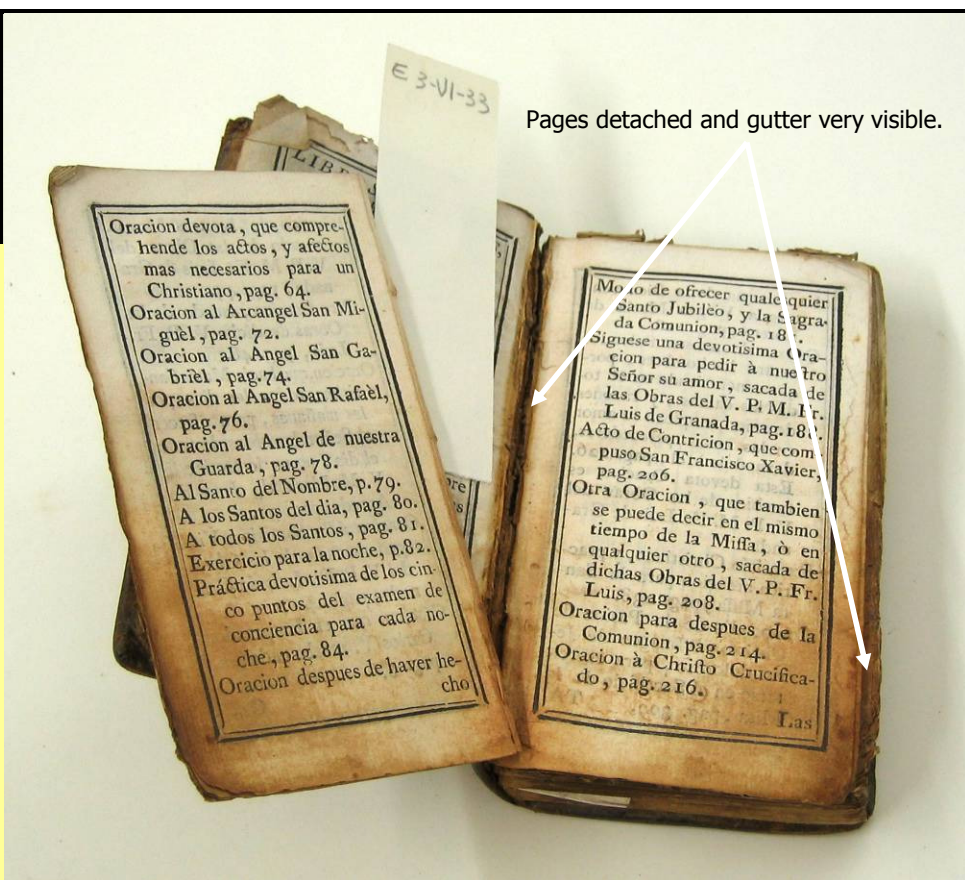 E 3-VI-33
Pages detached and gutter very visible.
LIBR
Oracion devota, que compre-
hende los actos, y afectos
mas necesarios para un
Christiano, pag. 64.
Oracion al Arcangel San Mi-
guèl, pag. 72.
Oracion al Angel San Ga-
brièl, pag. 74.
Oracion al Angel San Rafaèl,
pag. 76.
Oracion al Angel de nuestra
Guarda, pag. 78.
Al Santo del Nombre, p. 79.
A los Santos del dia, pag. 80.
A todos los Santos, pag. 81.
Exercicio para la noche, p. 82.
Práctica devotisima de los cin-
co puntos del examen de
conciencia para cada no-
che, pag. 84.
Oracion despues de haver he-
cho
Modo de ofrecer qualesquier
Santo Jubilèo, y la Sagra-
da Comunion, pag.
Siguese una devotisima Ora-
cion para pedir à nueſtro
Señor su amor, sacada de
las Obras del V. P. M. Fr.
Luis de Granada, pag.
Acto de Contricion, que com-
puso San Francisco Xavier,
pag. 206.
Otra Oracion, que tambien
se puede decir en el mismo
tiempo de la Miſſa, ò en
qualquier otro, sacada de
dichas Obras del V. P. Fr.
Luis, pag. 208.
Oracion para despues de la
Comunion, pag. 214.
Oracion à Chriſto Crucifica-
do, pag. 216.
Las